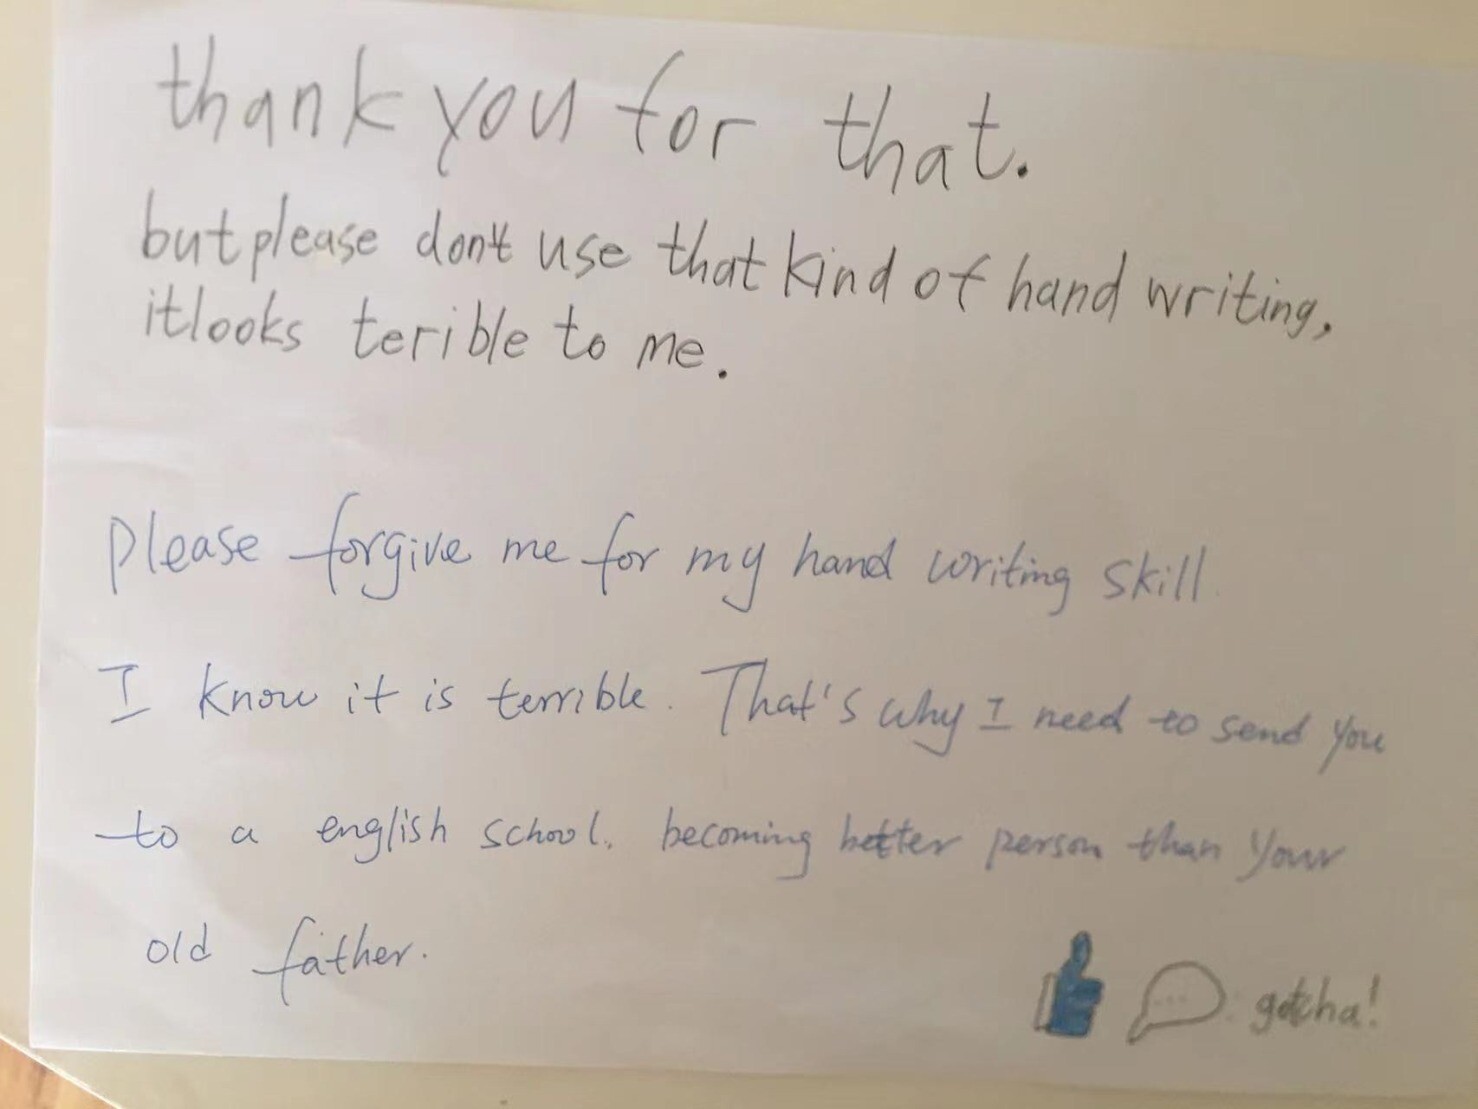 thank you for that.
but please don't use that kind of hand writing,
it looks terible to me.
please forgive me for my hand writing skill.
I know it is terrible. That's why I need to send you
to a english school. becoming better person than your
old father.
... gotcha!